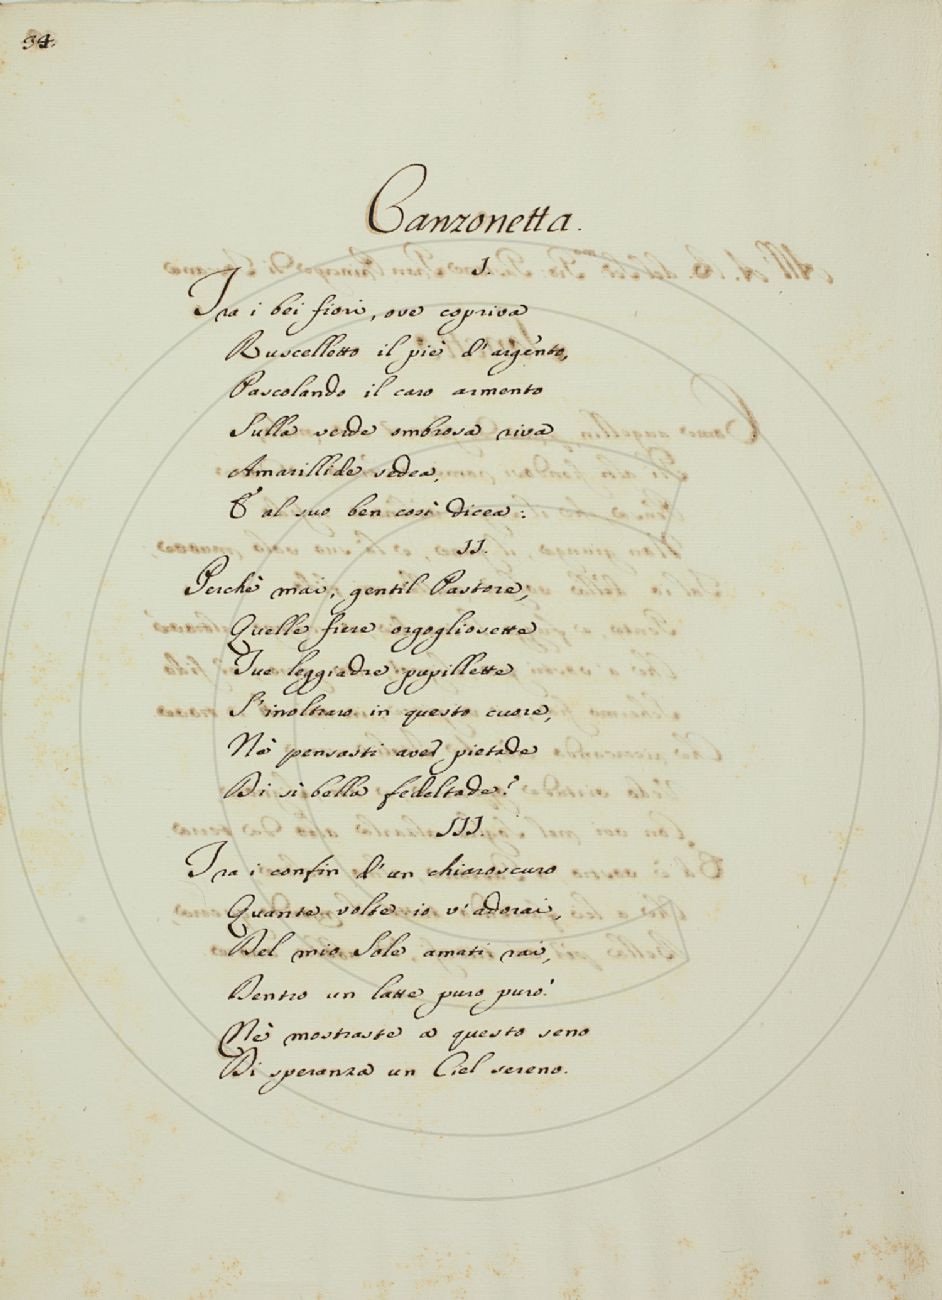 34.
Canzonetta.
I.
Tra i bei fiori, ove copriva
Ruscelletto il piè d'argento,
Pascolando il caro armento
Sulla verde ombrosa riva
Amarillide sedea,
E al suo ben così dicea:
II.
Perchè mai, gentil Pastore,
Quelle fiere orgogliosette
Tue leggiadre pupillette
S'inoltraro in questo cuore,
Nè pensasti aver pietade
Di sì bella fedeltade?
III.
Tra i confin d'un chiaroscuro
Quante volte io v'adorai,
Del mio Sole amati rai,
Dentro un latte puro puro!
Nè mostraste a questo seno
Di speranza un Ciel sereno.